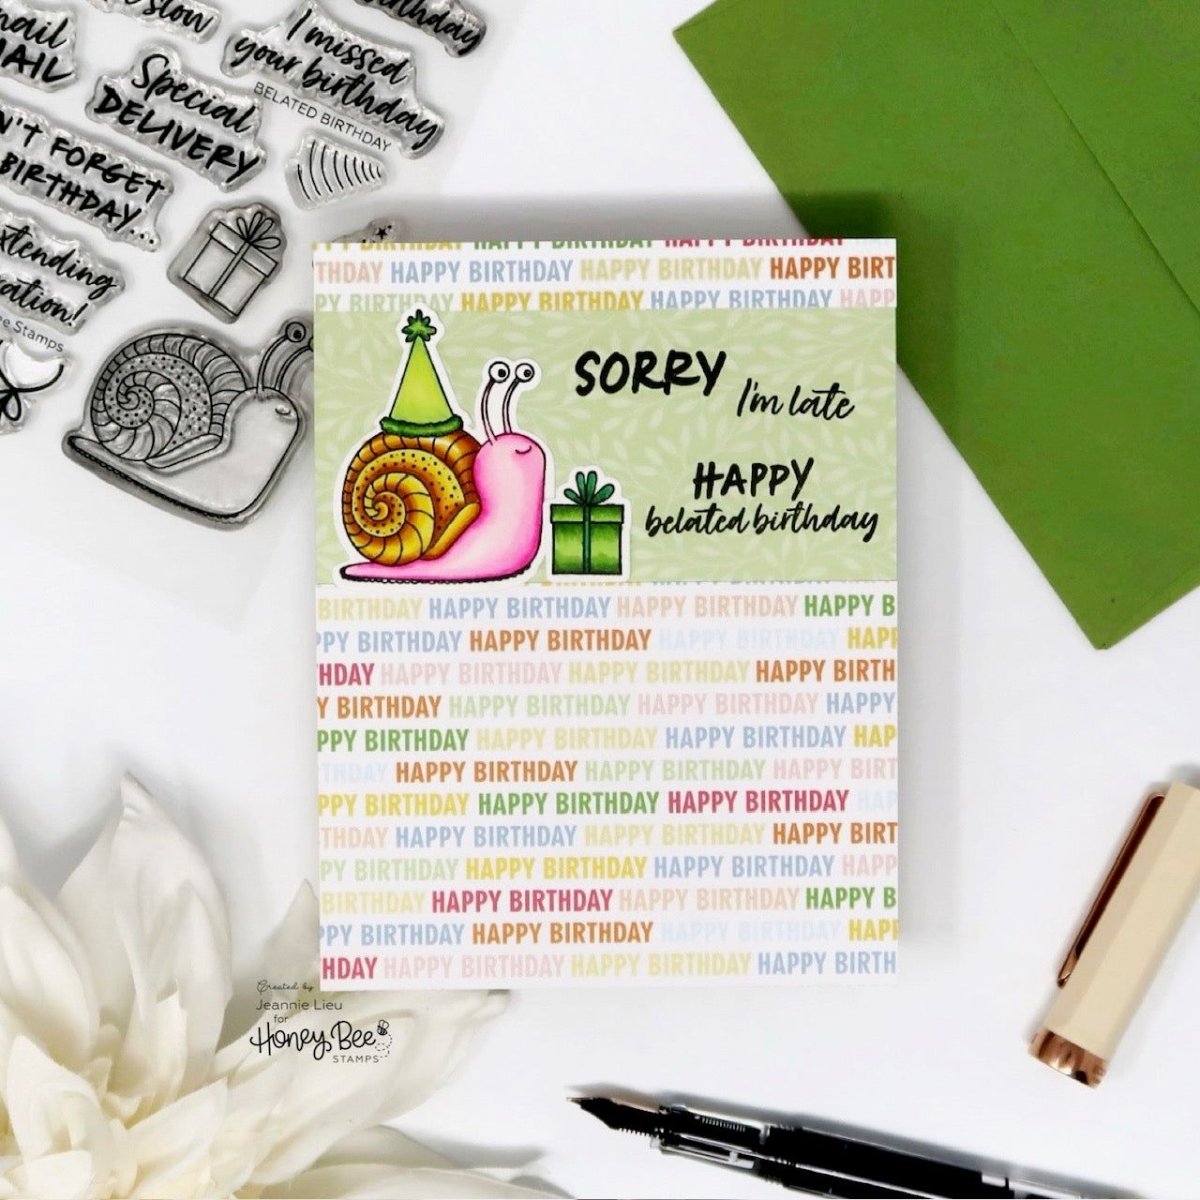 slow
Birthday
MAIL
I missed
your birthday
BELATED BIRTHDAY
Special
DELIVERY
N'T FORGET
BIRTHDAY...
HAPPY BIRTHDAY
THDAY HAPPY BIRTHDAY HAPPY BIRTHDAY HAPPY BIRT
PY BIRTHDAY HAPPY BIRTHDAY HAPPY BIRTHDAY HAPP
SORRY
I'm late
HAPPY
belated birthday
BIRTHDAY HAPPY BIRTHDAY HAPPY BIRTHDAY HAPPY B
PPY BIRTHDAY HAPPY BIRTHDAY HAPPY BIRTHDAY HAPP
HDAY HAPPY BIRTHDAY HAPPY BIRTHDAY HAPPY BIRTH
Y BIRTHDAY HAPPY BIRTHDAY HAPPY BIRTHDAY HAPPY
PPY BIRTHDAY HAPPY BIRTHDAY HAPPY BIRTHDAY HAP
THDAY HAPPY BIRTHDAY HAPPY BIRTHDAY HAPPY BIRT
PPY BIRTHDAY HAPPY BIRTHDAY HAPPY BIRTHDAY HAP
THDAY HAPPY BIRTHDAY HAPPY BIRTHDAY HAPPY BIRT
PY BIRTHDAY HAPPY BIRTHDAY HAPPY BIRTHDAY HAPP
BIRTHDAY HAPPY BIRTHDAY HAPPY BIRTHDAY HAPPY B
PPY BIRTHDAY HAPPY BIRTHDAY HAPPY BIRTHDAY HAPP
HDAY HAPPY BIRTHDAY HAPPY BIRTHDAY HAPPY BIRTH
Created by
Jeannie Lieu
for
Honey Bee
STAMPS